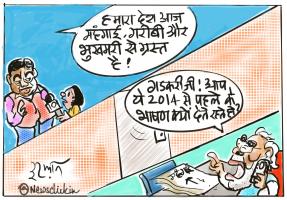 हमारा देश आज
मंहगाई, गरीबी और
भुखमरी से ग्रस्त
है!
गडकरी जी! आप
ये 2014 से पहले के
भाषण क्यों देते रहते हैं
इरफ़ान
Newsclickin